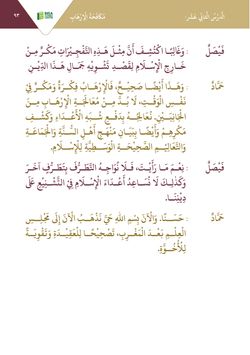 الدَّرْسُ الثَّانِي عَشَر
مُكَافَحَةُ الْإِرْهَابِ
٩٣
فَيْصَلٌ : وَغَالِبًا اكْتُشِفَ أَنَّ مِثْلَ هَذِهِ التَّفْجِيرَاتِ مَكْرٌ مِنْ
خَارِجِ الْإِسْلَامِ لِقَصْدِ تَشْوِيهِ جَمَالِ هَذَا الدِّيْنِ
حَمَّادٌ : وَهَذَا أَيْضًا صَحِيْحٌ، فَالْإِرْهَابُ فِكْرَةٌ وَمَكْرٌ فِي
نَفْسِ الْوَقْتِ، لَا بُدَّ مِنْ مُعَالَجَةِ الْإِرْهَابِ مِنَ
الْجَانِبَيْنِ، نُعَالِجُهُ بِدَفْعِ شُبَهِ الْأَعْدَاءِ وَكَشْفِ
مَكْرِهِمْ وَأَيْضًا بِبَيَانِ مَنْهَجِ أَهْلِ السُّنَّةِ وَالْجَمَاعَةِ
وَالتَّعَالِيْمِ الصَّحِيْحَةِ الْوَسَطِيَّةِ لِلْإِسْلَامِ.
فَيْصَلٌ : نِعْمَ مَا رَأَيْتَ، فَلَا نُوَاجِهُ التَّطَرُّفَ بِتَطَرُّفٍ آخَرَ
وَكَذَلِكَ لَا نُسَاعِدُ أَعْدَاءَ الْإِسْلَامِ فِي التَّشْنِيْعِ عَلَى
دِيْنِنَا.
حَمَّادٌ : حَسَنًا. وَالْآنَ بِسْمِ اللهِ هَيَّ نَذْهَبُ الْآنَ إِلَى مَجْلِسِ
الْعِلْمِ بَعْدَ الْمَغْرِبِ، تَصْحِيْحًا لِلْعَقِيْدَةِ وَتَقْوِيَةً
لِلْأُخُوَّةِ.